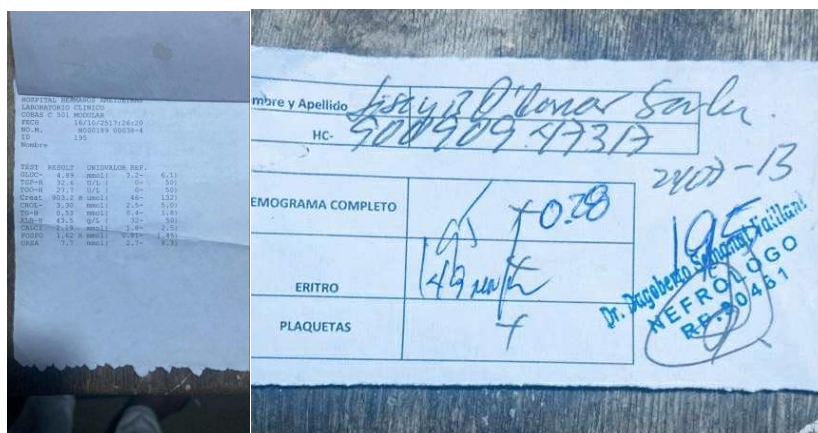 HOSPITAL HERMANOS AMEIJEIRAS
LABORATORIO CLINICO
COBAS C 501 MODULAR
FECH 16/10/2517:26:20
NO.M. N000189 00038-4
ID 195
Nombre
TEST RESULT UNIDVALOR REF.
GLUC- 4.89 mmol( 3.2- 6.1)
TGP-H 32.6 U/L ( 0- 50)
TGO-H 27.7 U/L ( 0- 50)
Creat 903.2 H umol( 46- 132)
CHOL- 3.30 mmol( 2.5- 5.0)
TG-H 0.53 mmol( 0.4- 1.8)
ALB-H 43.5 g/L ( 32- 50)
CALCI 2.19 mmol( 1.8- 2.5)
FOSFO 1.62 H mmol( 0.81- 1.45)
UREA 7.7 mmol( 2.7- 8.3)
mbre y Apellido
HC- 90090947317
2407-13
EMOGRAMA COMPLETO + 0.28
195
ERITRO 49 mm/h
PLAQUETAS +
Dr. Dagoberto
NEFROLOGO